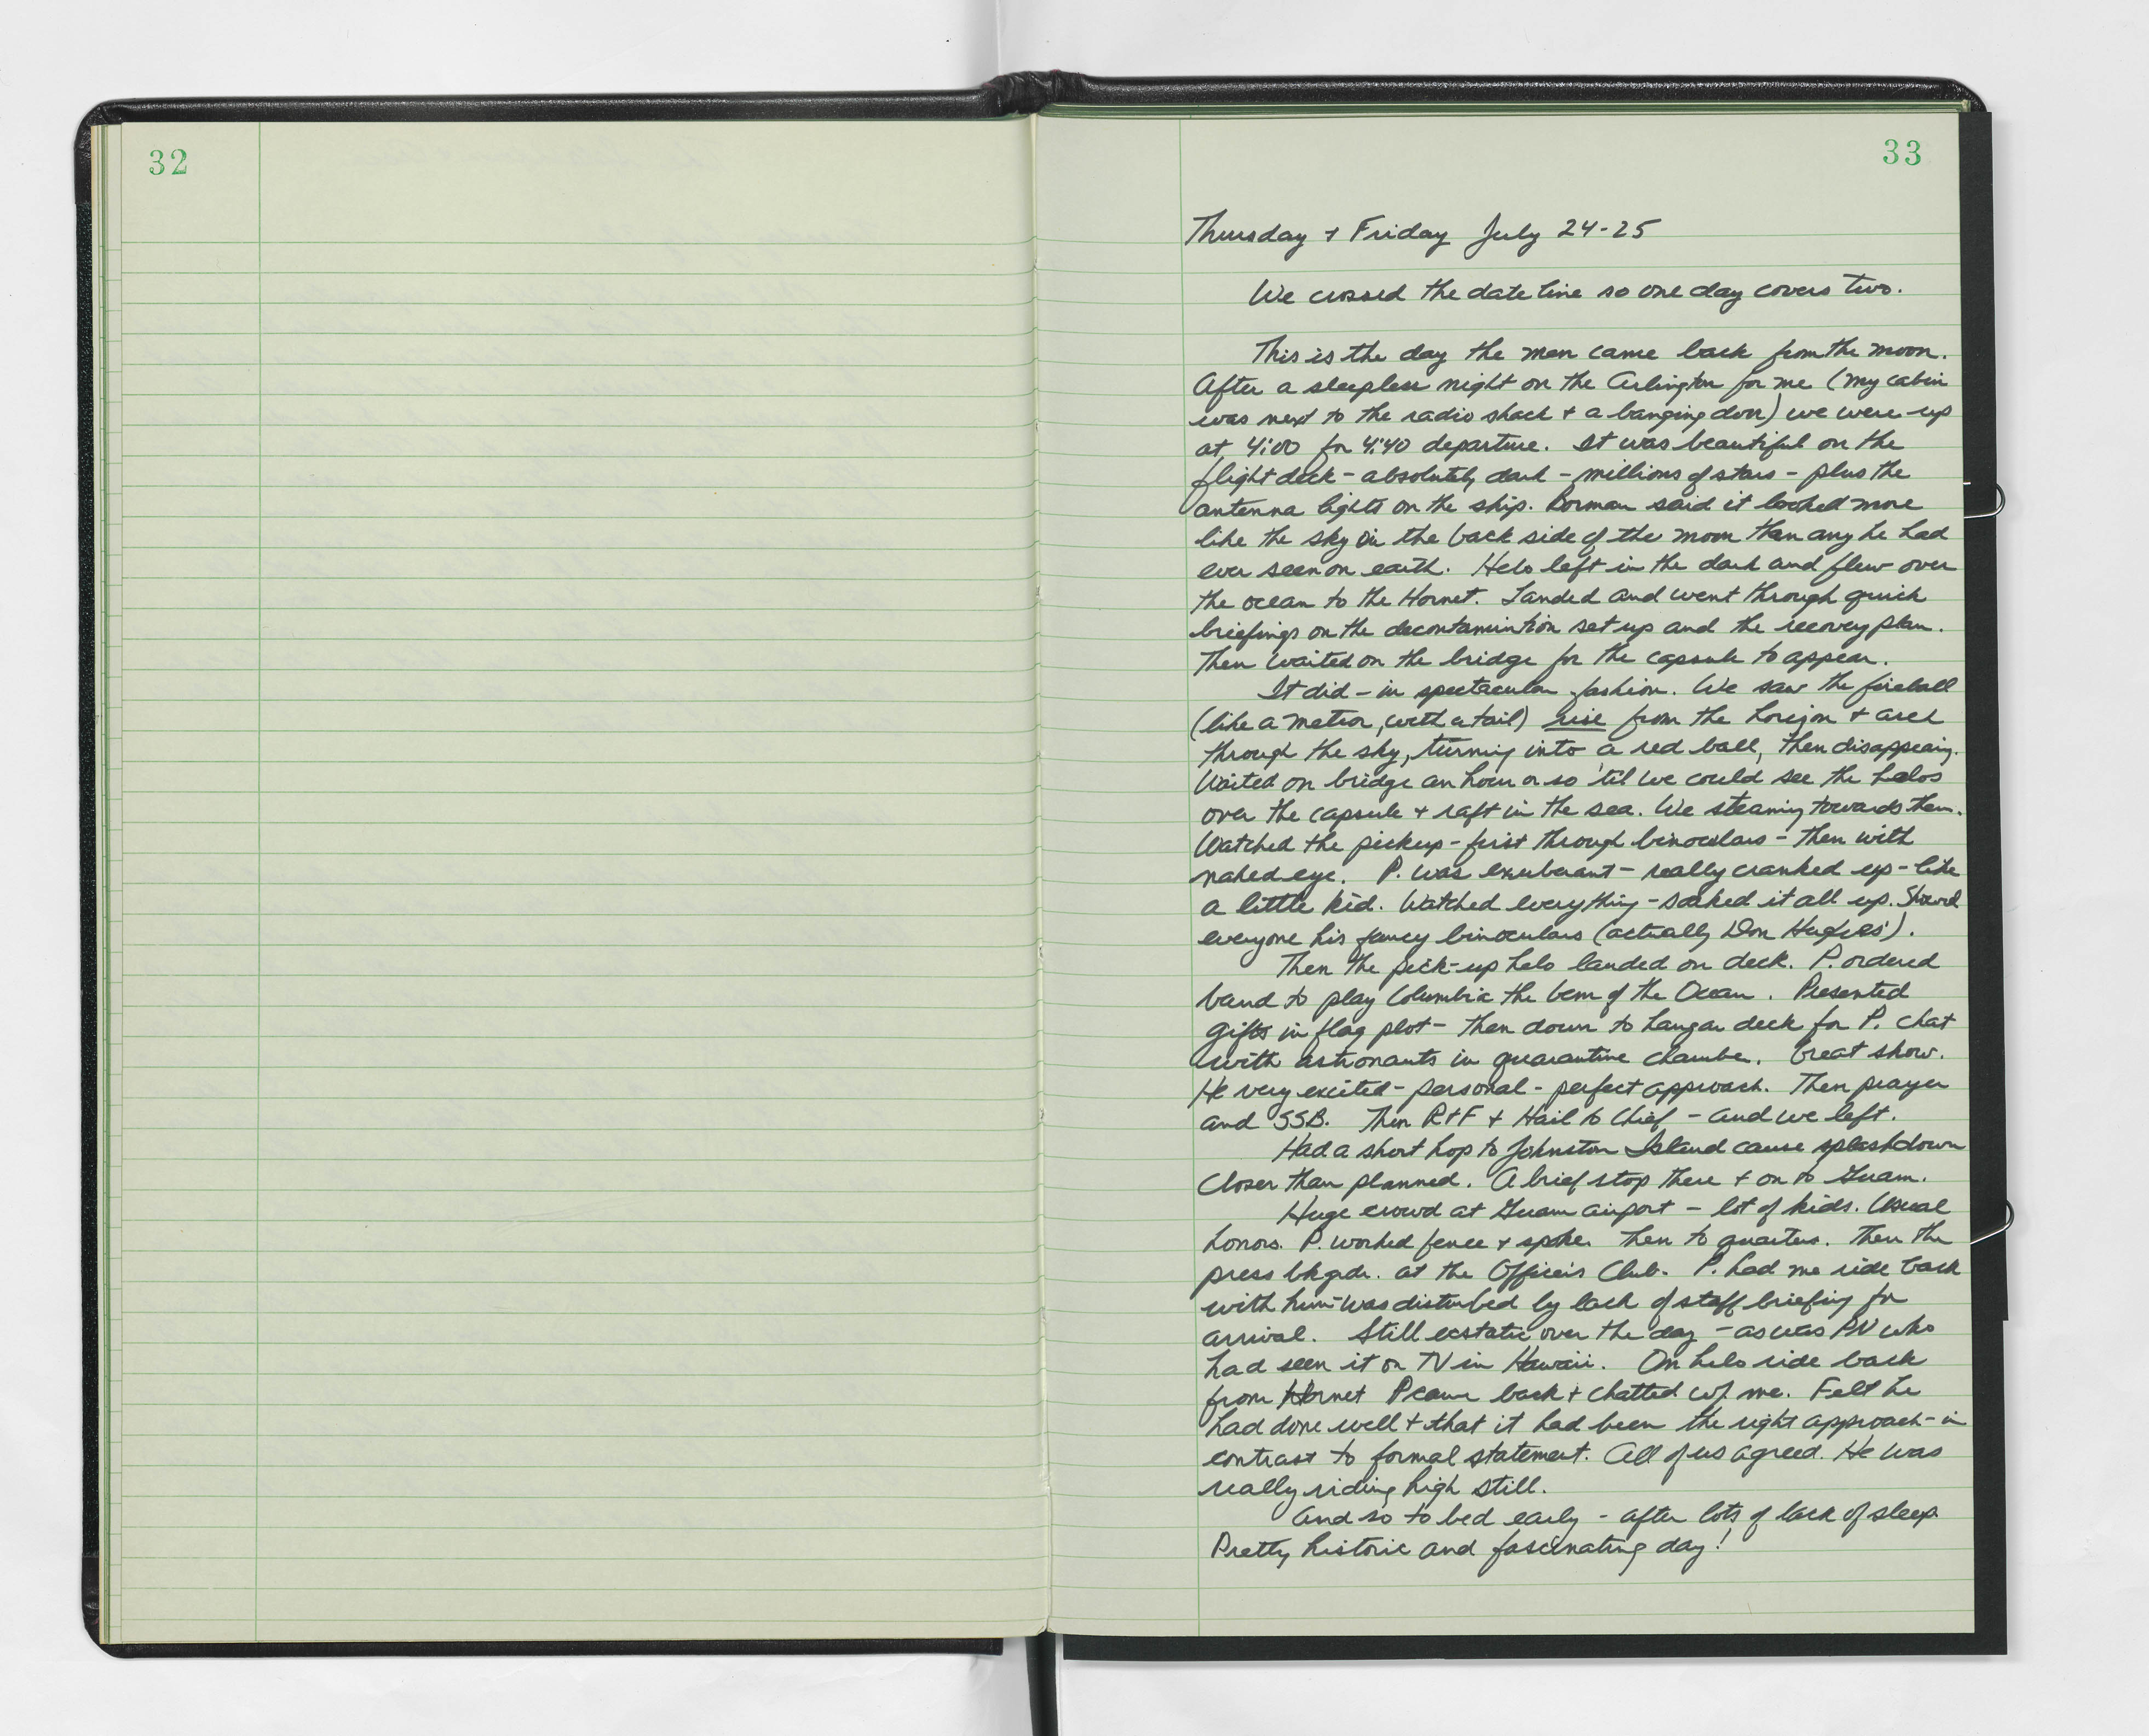 32
33
Thursday + Friday July 24-25
We crossed the date line so one day covers two.
This is the day the men came back from the moon.
After a sleepless night on the Arlington for me (my cabin
was next to the radio shack + a banging door) we were up
at 4:00 for 4:40 departure. It was beautiful on the
flight deck - absolutely dark - millions of stars - plus the
antenna lights on the ship. Borman said it looked more
like the sky on the back side of the moon than any he had
ever seen on earth. Helo left in the dark and flew over
the ocean to the Hornet. Landed and went through quick
briefings on the decontamintion set up and the recovery plan.
Then waited on the bridge for the capsule to appear.
It did - in spectacular fashion. We saw the fireball
(like a meteor, with a tail) rise from the horizon + arch
through the sky, turning into a red ball, then disappearing.
Waited on bridge an hour or so 'til we could see the helos
over the capsule + raft in the sea. We steaming towards them.
Watched the pickup - first through binoculars - then with
naked eye. P. was exuberant - really cranked up - like
a little kid. Watched everything - soaked it all up. Showed
everyone his fancy binoculars (actually Don Hughes').
Then the pick-up helo landed on deck. P. ordered
band to play Columbia the Gem of the Ocean. Presented
gifts in flag plot - then down to hangar deck for P. chat
with astronauts in quarantine chamber. Great show.
He very excited - personal - perfect approach. Then prayer
and SSB. Then R+F + Hail to Chief - and we left.
Had a short hop to Johnston Island cause splashdown
closer than planned. A brief stop there + on to Guam.
Huge crowd at Guam airport - lot of kids. Usual
honors. P. worked fence + spoke. Then to quarters. Then the
press bkgdr. at the Officers Club. P. had me ride back
with him - was disturbed by lack of staff briefing for
arrival. Still ecstatic over the day - as was PN who
had seen it on TV in Hawaii. On helo ride back
from Hornet P came back + chatted w/ me. Felt he
had done well + that it had been the right approach - in
contrast to formal statement. All of us agreed. He was
really riding high still.
And so to bed early - after lots of lack of sleep.
Pretty historic and fascinating day!